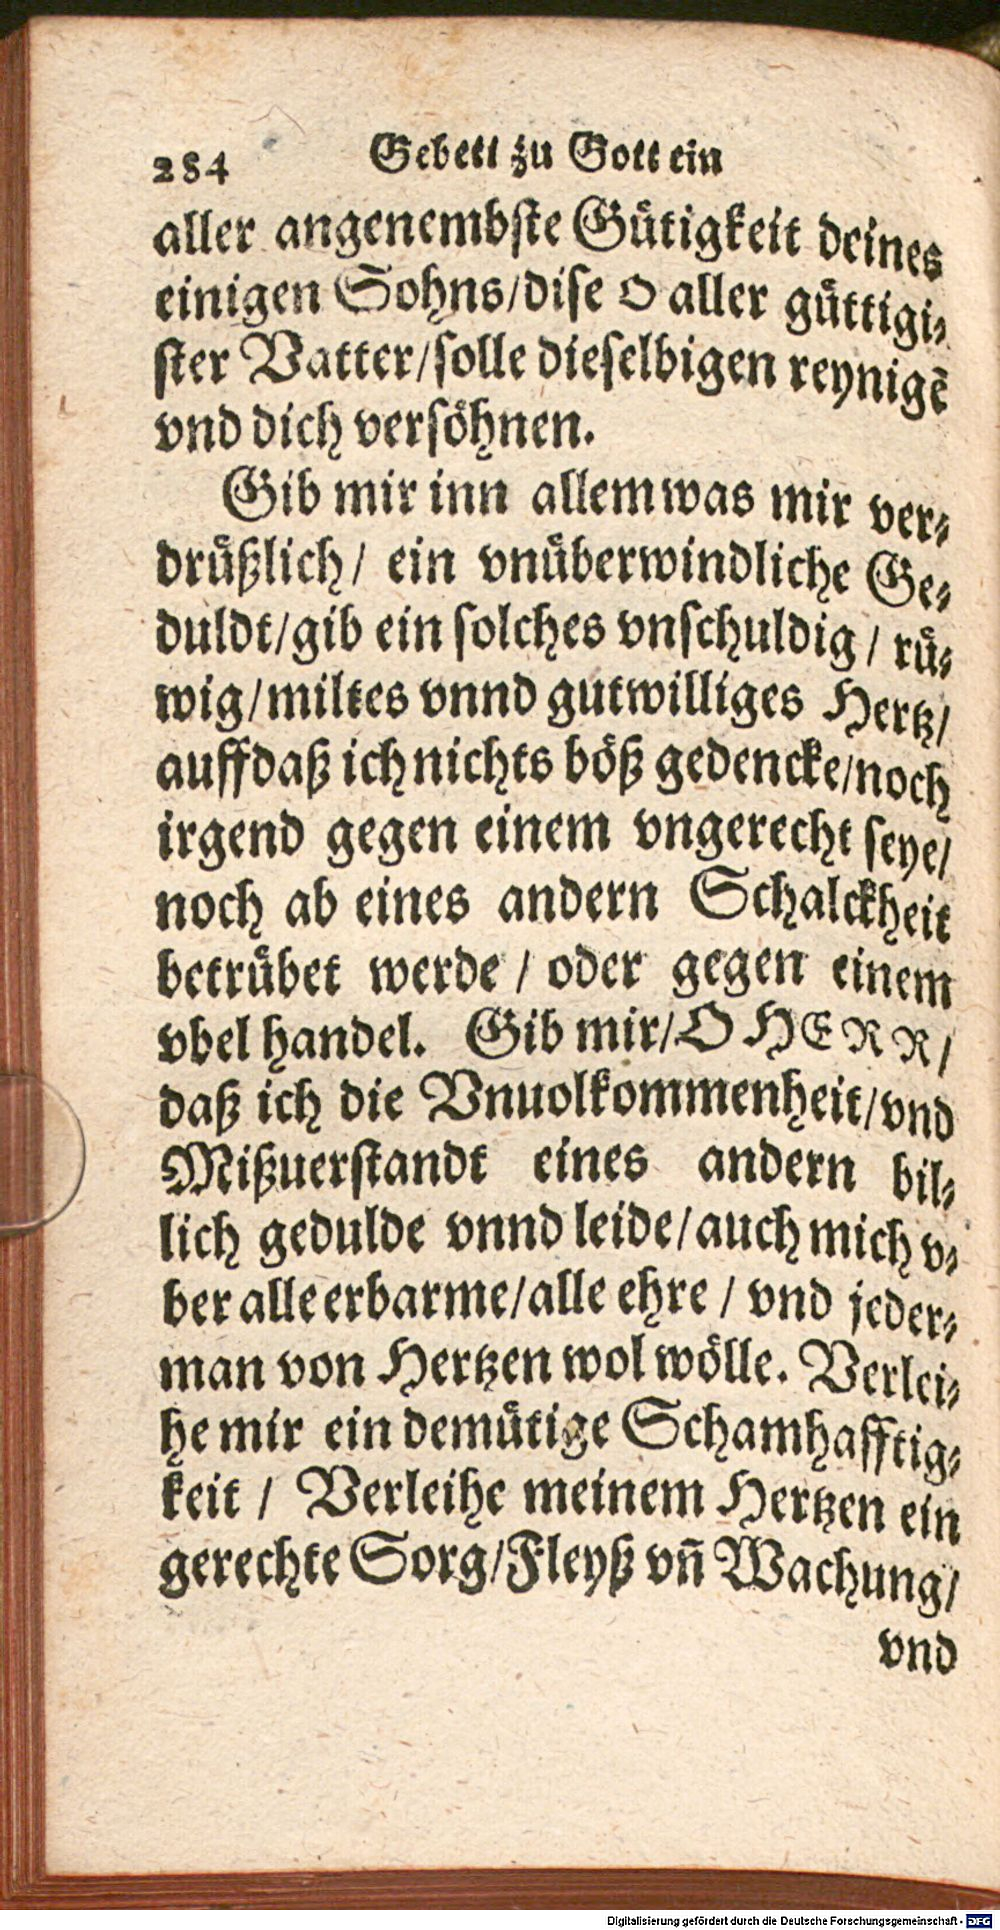 284 Gebett zu Gott ein
aller angenembste Gütigkeit deines
einigen Sohns/dise O aller güttigi-
ster Vatter/solle dieselbigen reynigē
vnd dich versöhnen.
Gib mir inn allem was mir ver-
drüßlich/ ein vnüberwindliche Ge-
duldt/gib ein solches vnschuldig/ rü-
wig/miltes vnnd gutwilliges Hertz/
auff daß ich nichts böß gedencke/noch
irgend gegen einem vngerecht seye/
noch ab eines andern Schalckheit
betrübet werde / oder gegen einem
vbel handel. Gib mir/O HERR/
daß ich die Vnuolkommenheit/vnd
Mißuerstandt eines andern bil-
lich gedulde vnnd leide/auch mich v-
ber alle erbarme/alle ehre / vnd jeder-
man von Hertzen wol wölle. Verlei-
he mir ein demütige Schamhafftig-
keit / Verleihe meinem Hertzen ein
gerechte Sorg/Fleyß vñ Wachung/
vnd
Digitalisierung gefördert durch die Deutsche Forschungsgemeinschaft - DFG